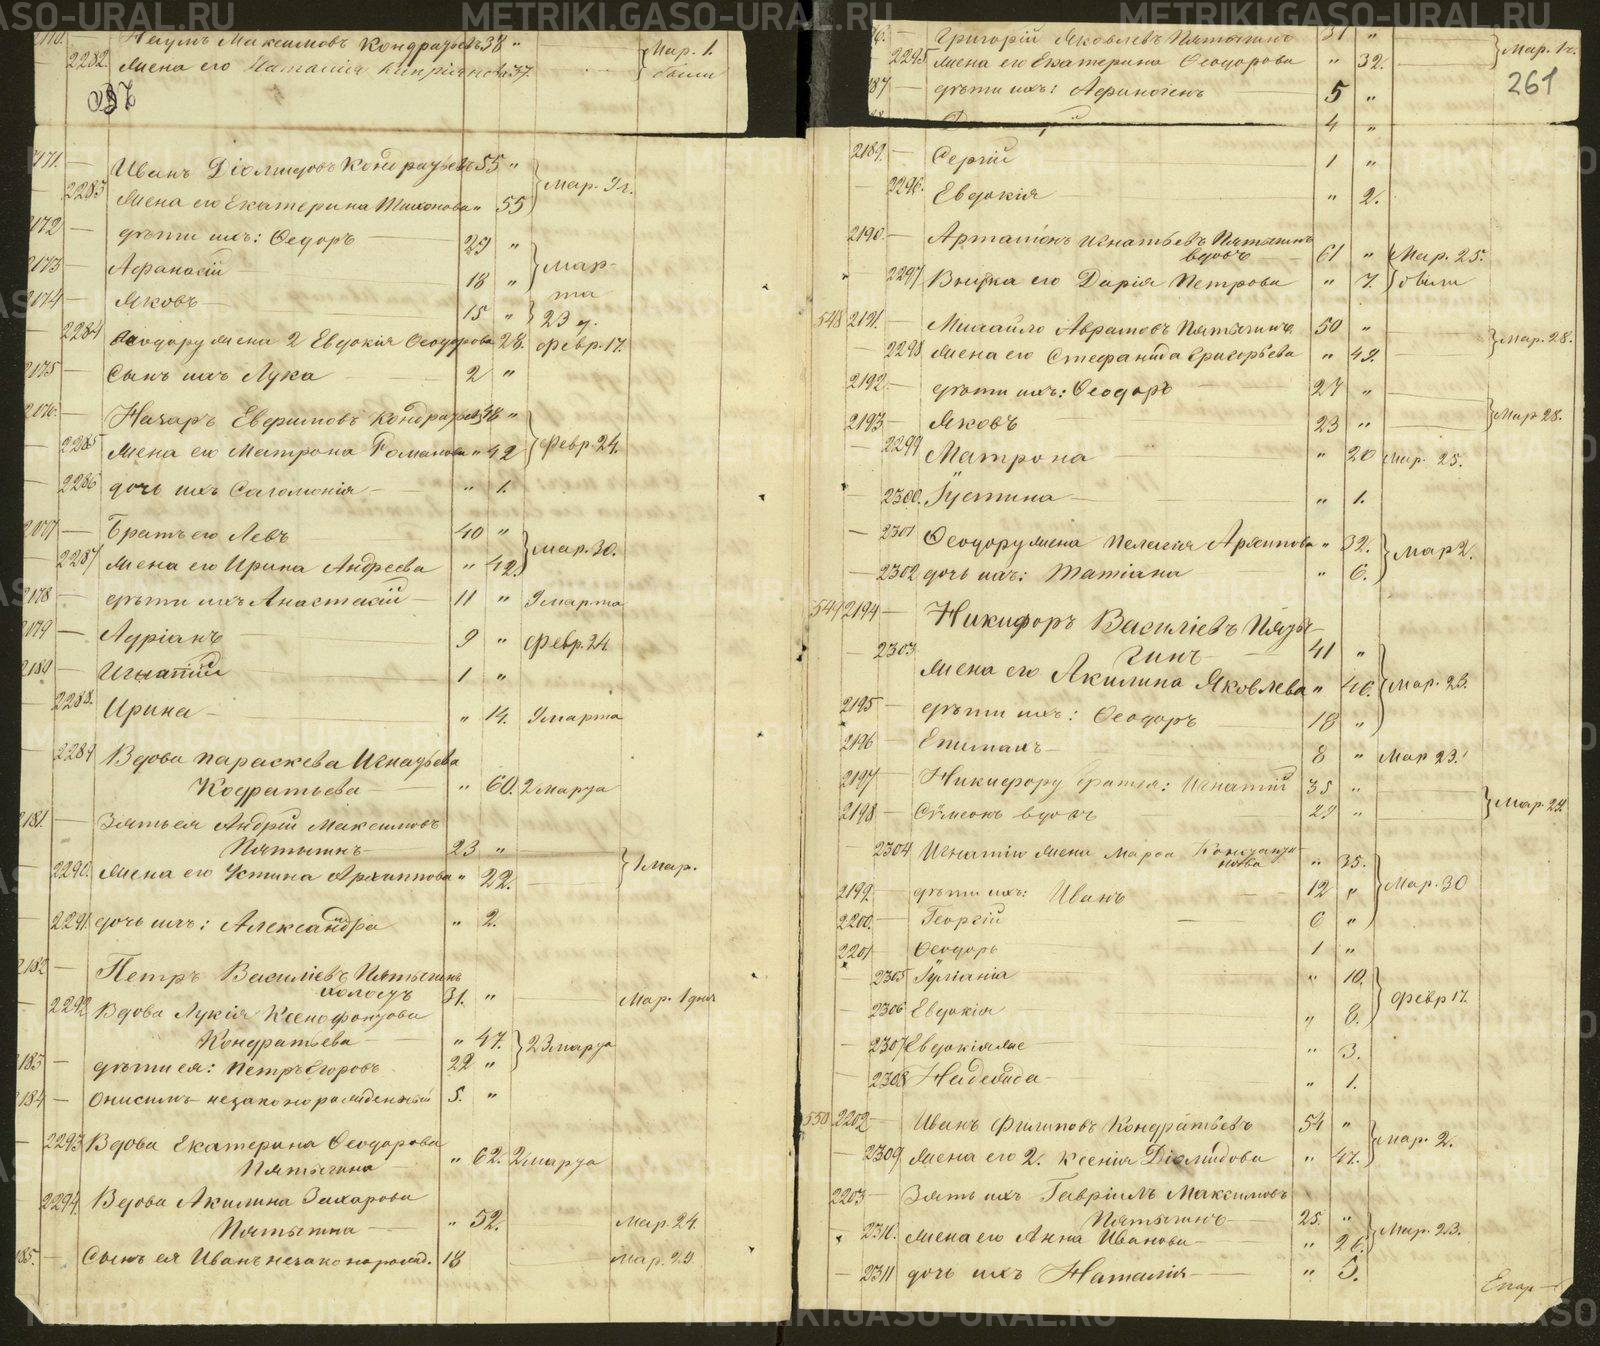 Наумъ Максимовъ Кондратьевъ 38 "
2282. жена его Наталия Киприянова 37. Мар. 1. были
Иванъ Діомидовъ Кондратьевъ 55 "
2283 жена его Екатерина Тихонова " 55 Мар. 9 г.
2172 — дѣти ихъ: Ѳеодоръ — 29 "
2173 — Афанасій — 18 " мар-
2174 — Яковъ — 15 " та 23 д.
2284 Ѳеодору жена 2 Евдокія Ѳеодорова 28. Февр. 17.
2175 — Сынъ ихъ Лука — 2 "
2176. — Назаръ Евфимовъ Кондратьевъ 48 "
2285 жена его Матрона Романова " 42 Февр. 24.
2286 дочь ихъ Саломонія — " 1.
2177 — Братъ его Левъ 40 "
2287 жена его Ирина Андреева " 42. Мар. 30.
2178 — дѣти ихъ Анастасій — 11 " 9 марта
2179 — Адріанъ 9 " Февр. 24
2180 — Игнатій 1 "
2288. Ирина — " 14. 9 марта
2289 Вдова Параскева Игнатьева
Кодратьева — " 60. 2 марта
2181. — Зять ея Андрій Максимовъ
Пятыгинъ — 23 "
2290. жена его Устина Архиппова " 22. 1 Мар.
2291. дочь ихъ: Александра " 2.
2182 — Петръ Василіевъ Пятыгинъ
холостъ 31. " Мар. 1 дня
2292 Вдова Лукія Ксенофонтова
Кондратьева — " 47. 23 марта
2183 — дѣти ея: Петръ Егоровъ 22 "
2184 — Онисимъ незаконорожденный 5. "
2293 Вдова Екатерина Ѳеодорова
Пятыгина — " 62. 2 марта
2294. Вдова Акилина Захарова
Пятыгина — " 52. Мар. 24.
2185. — Сынъ ея Иванъ незаконорожд. 18 Мар. 24
261
Григорій Яковлевъ Пятыгинъ 31 "
2295 жена его Екатерина Ѳеодорова " 32. Мар. 1 г.
2187 — дѣти ихъ: Афиногенъ 5 "
4 "
2189. — Сергій 1 "
2296. Евдокія " 2.
2190. — Артамонъ Игнатьевъ Пятыгинъ
вдовъ — 61 " Мар. 25.
2297 Внучка его Дарія Петрова " 7. были
548 2191. — Михайло Аврамовъ Пятыгинъ 50 "
2298 жена его Стефанида Григорьева " 49. Мар. 28.
2192. — дѣти ихъ: Ѳеодоръ 27 "
2193 — Яковъ 23 " Мар 28.
2299 Матрона — " 20 Мар. 25.
2300. Іустина — " 1.
2301 Ѳеодору жена Пелагія Архиппова " 32. Мар 2.
2302 дочь ихъ: Татіана " 6.
549 2194 — Никифоръ Василіевъ Пяты-
гинъ — 41 "
2303. жена его Акилина Яковлева " 40. Мар. 23.
2195 — дѣти ихъ: Ѳеодоръ 18 "
2196 — Епимахъ 8 " Мар 23.
2197 — Никифору братья: Игнатій 35 "
2198 — Сѵмеонъ вдовъ 29 " Мар. 24.
2304 Игнатію жена Марѳа Константи-
нова " 35.
2199. — дѣти ихъ: Иванъ 12 " Мар. 30
2200. — Георгій — 6 "
2201 — Ѳеодоръ 1 "
2305 Іуліанія " 10.
2306 Евдокія — " 8. Февр 17.
2307 Евдокія же " 3.
2308 Надежда — " 1.
550 2202 — Иванъ Филиповъ Кондратьевъ 54 "
2309 жена его 2. Ксенія Діомидова " 47. Мар. 2.
2203 — Зять ихъ Гавріилъ Максимовъ
Пятыгинъ — 25. "
2310. жена его Анна Иванова — " 26. Мар. 23.
2311 дочь ихъ Наталія — " 5.